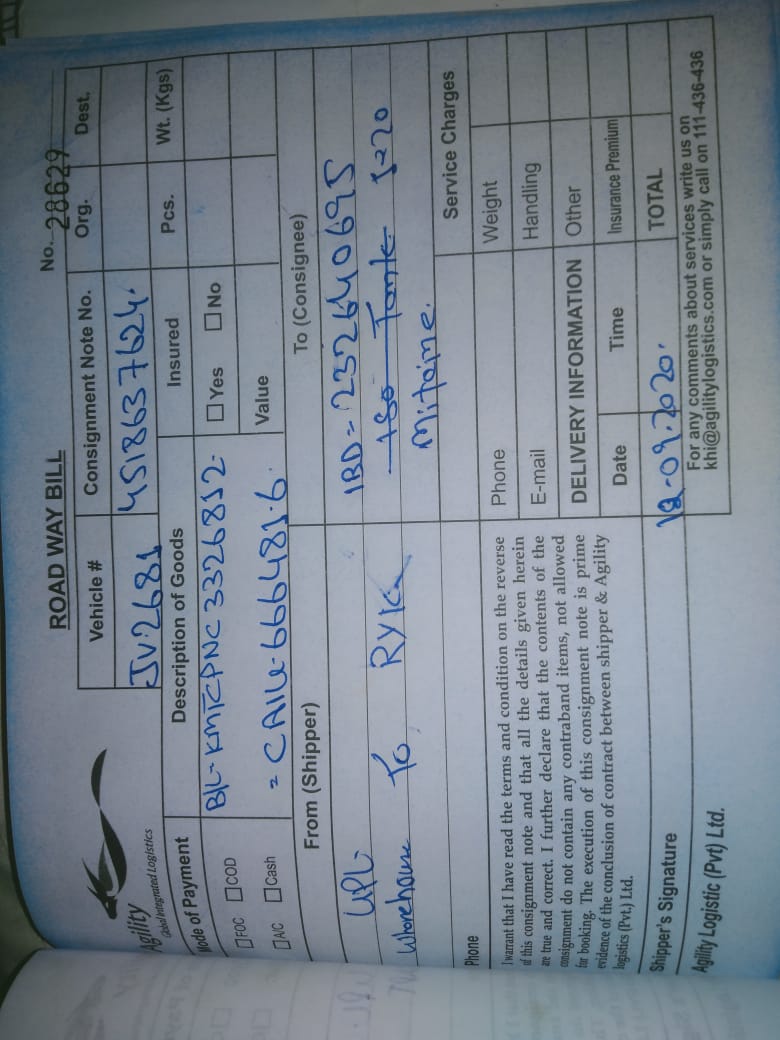 ROAD WAY BILL
No. 28629
Agility
Global Integrated Logistics
Vehicle # Consignment Note No. Org. Dest.
JV.2681 4518637624.
Mode of Payment Description of Goods Insured Pcs. Wt. (Kgs)
B/L- KMTCPNC 3326812-
FOC COD Yes No
A/C Cash = CAIU-666481-6. Value
From (Shipper) To (Consignee)
UPL IBD = 232640695
Whorehouse To RYK 180 Tank
Phone Service Charges
I warrant that I have read the terms and condition on the reverse
of this consignment note and that all the details given herein
are true and correct. I further declare that the contents of the
consignment do not contain any contraband items, not allowed
for booking. The execution of this consignment note is prime
evidence of the conclusion of contract between shipper & Agility
logistics (Pvt.) Ltd.
Phone Weight
E-mail Handling
DELIVERY INFORMATION Other
Date Time Insurance Premium
Shipper's Signature 12-09.2020. TOTAL
Agility Logistic (Pvt) Ltd.
For any comments about services write us on
khi@agilitylogistics.com or simply call on 111-436-436